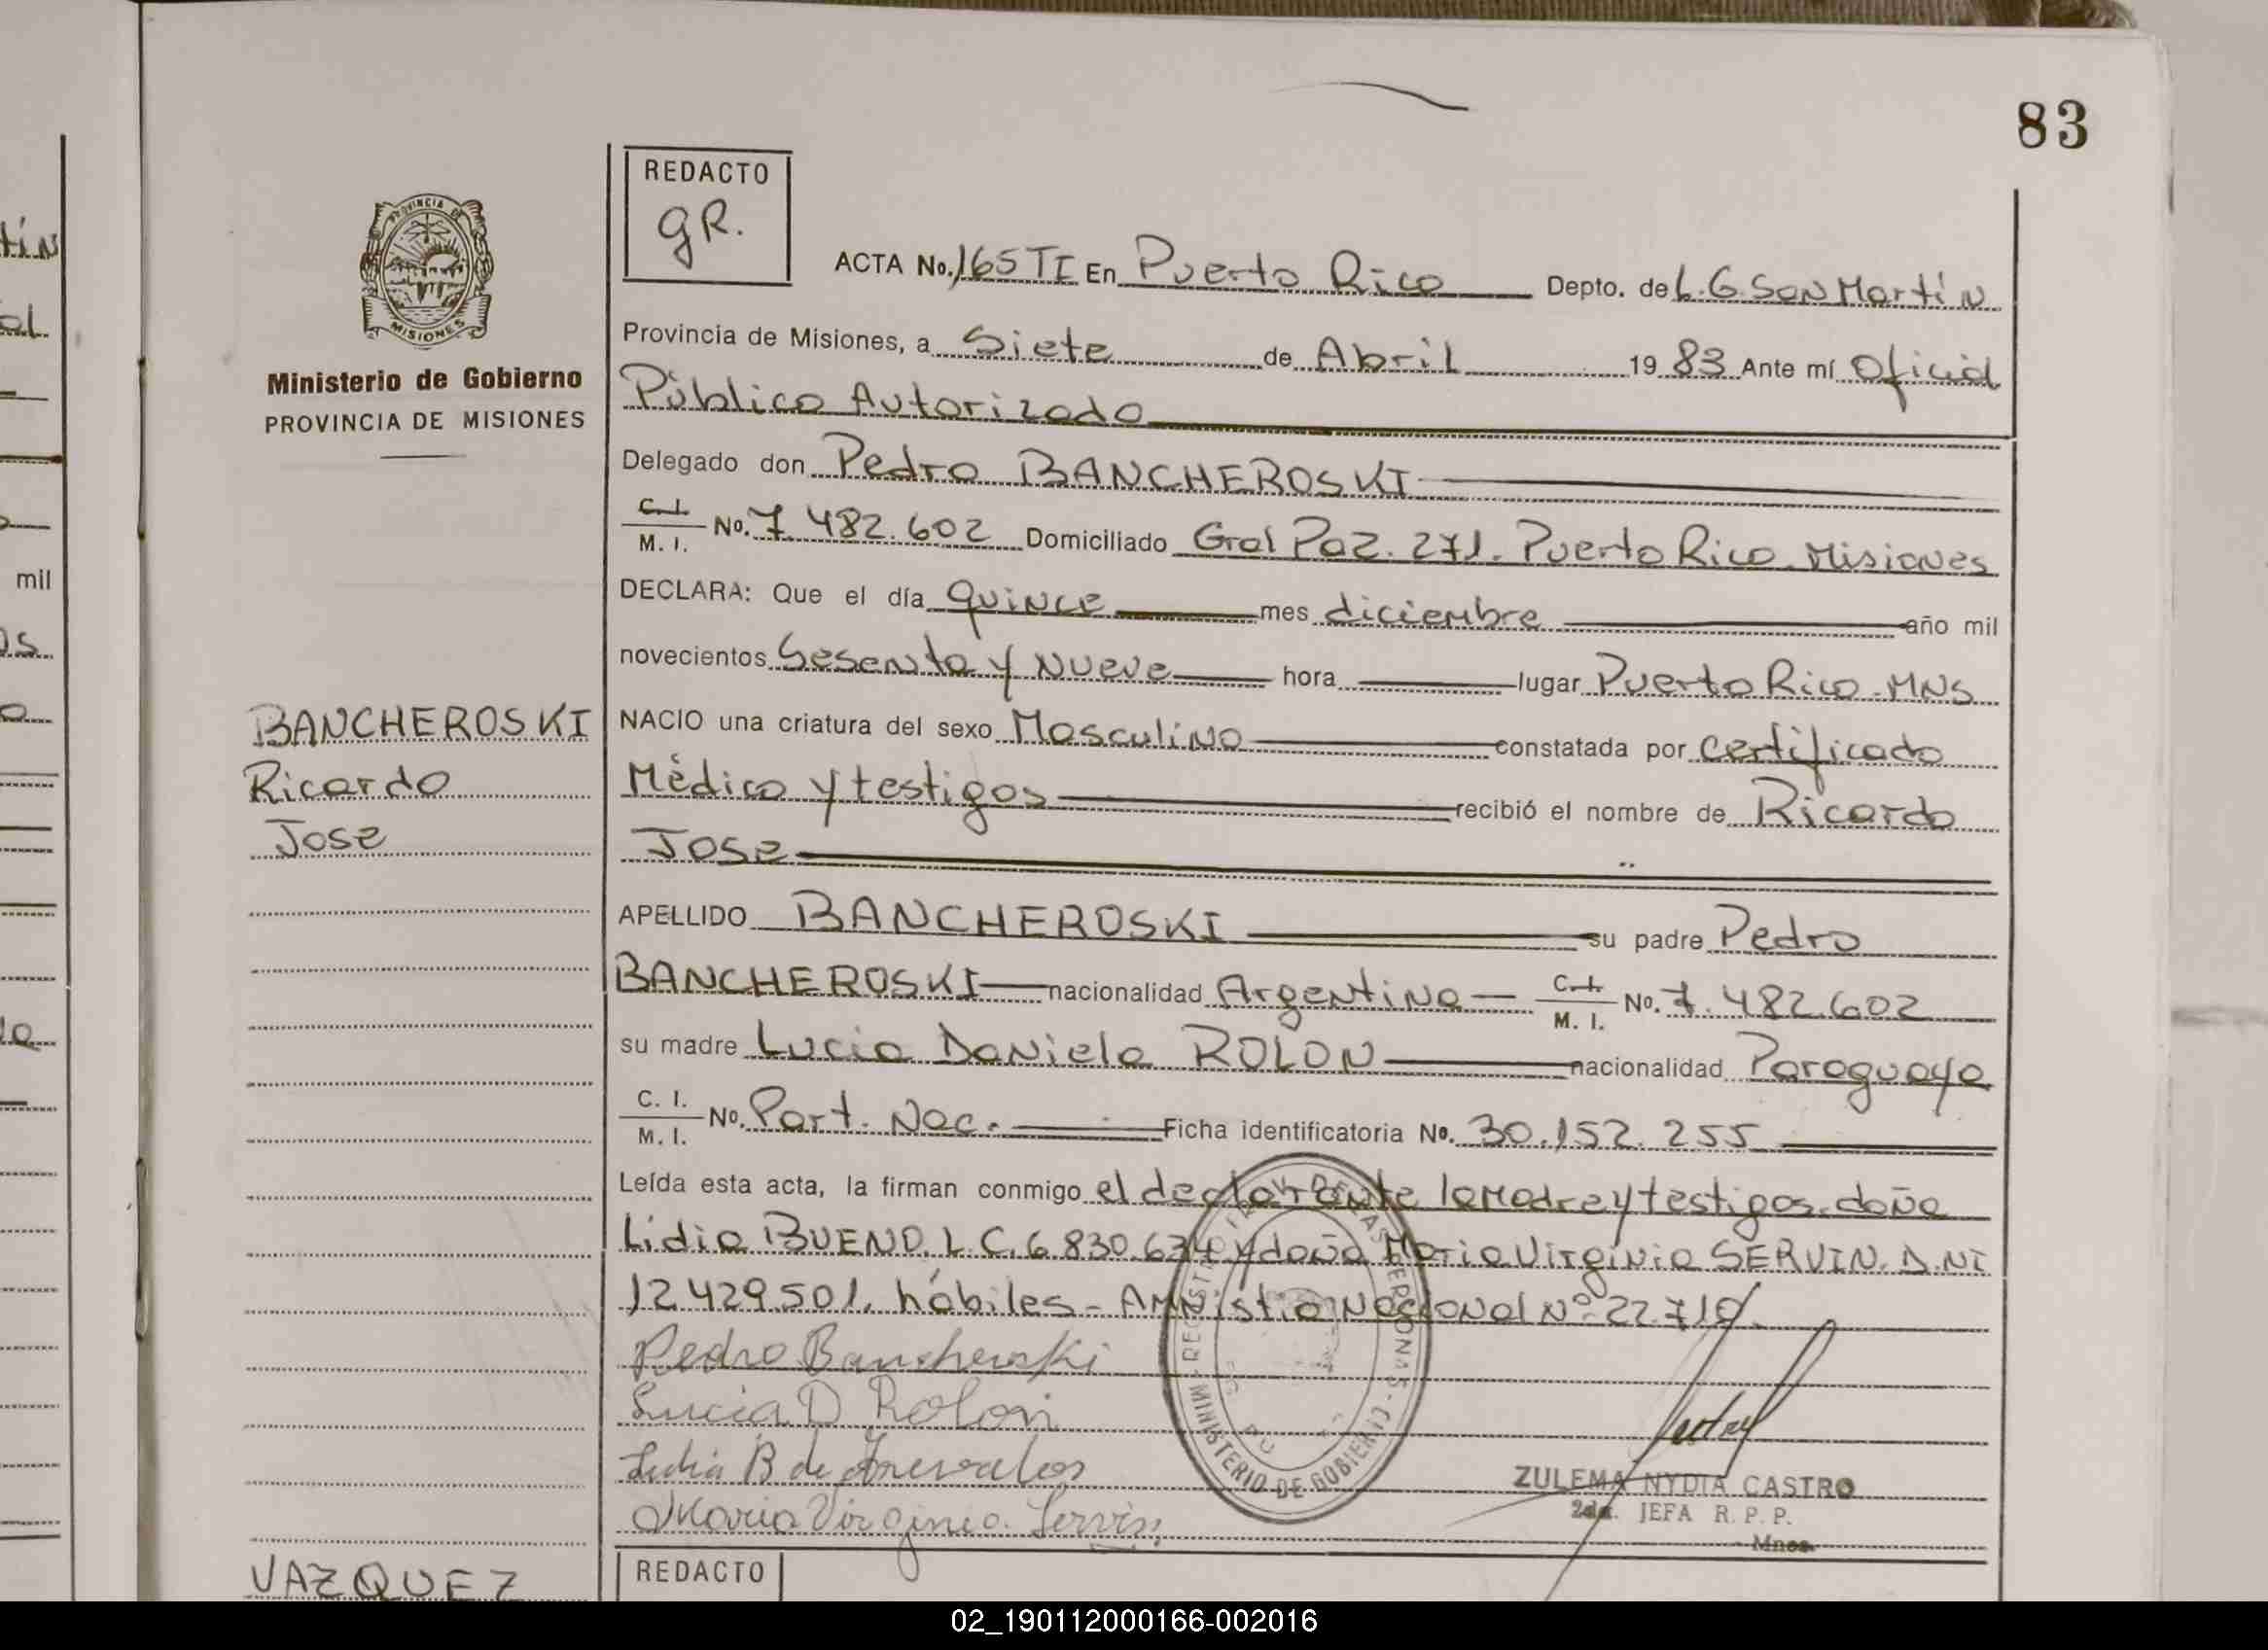 83
REDACTO
gR.
PROVINCIA DE
MISIONES
Ministerio de Gobierno
PROVINCIA DE MISIONES
ACTA No. 165 TI En Puerto Rico Depto. de L. G. San Martín
Provincia de Misiones, a Siete de Abril 19 83 Ante mí Oficial
Público Autorizado
Delegado don Pedro BANCHEROSKI
C. I.
M. I. No. 7.482.602 Domiciliado Gral Paz. 271. Puerto Rico. Misiones
DECLARA: Que el día quince mes diciembre año mil
novecientos Sesenta y Nueve hora lugar Puerto Rico - MNS
NACIO una criatura del sexo Masculino constatada por certificado
Médico y testigos recibió el nombre de Ricardo
Jose
APELLIDO BANCHEROSKI su padre Pedro
BANCHEROSKI nacionalidad Argentina C. I.
M. I. No. 7.482.602
su madre Lucia Daniela ROLON nacionalidad Paraguaya
C. I.
M. I. No. Part. Nac. Ficha identificatoria No. 30.152.255
Leída esta acta, la firman conmigo el declarante la Madre y testigos. doña
Lidia BUENO. L. C. 6 830.634 y doña Maria Virginia SERVIN. D.NI
12 429.501. hábiles - Amnistia Nacional Nº 22.710.
Pedro Bancheroski
Lucia D Rolon
Lidia B de Arevalos
Maria Virginia Servin
MINISTERIO DE GOBIERNO
ZULEMA NYDIA CASTRO
2da. JEFA R. P. P.
Mnes.
BANCHEROSKI
Ricardo
Jose
VAZQUEZ
REDACTO
tín
al
mil
os
02_190112000166-002016